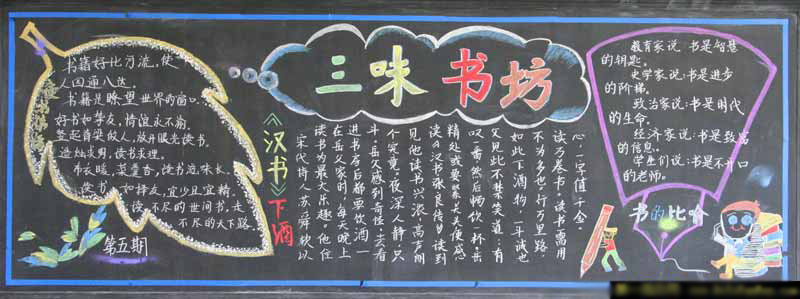 三味书坊
书籍好比河流，使
人四通八达。
书籍是瞭望世界的窗口。
好书如挚友，情谊永不渝。
竖起脊梁做人，放开眼光读书。
造烛求明，读书求理。
布衣暖，菜羹香，读书滋味长。
读书如择友，宜少且宜精。
读不尽的世间书，走
不尽的天下路。
第五期
《汉书》下酒
宋代诗人苏舜钦以
读书为最大乐趣。他住
在岳父家时，每天晚上
进书房后都要饮酒一
斗。岳父感到奇怪，去看
个究竟。夜深人静，只
见他读书兴浓，高声朗
读《汉书张良传》。读到
精处或要紧关头，便感
叹一番，然后畅饮一杯。岳
父见此不禁笑道：有
如此下酒物，一斗诚也
不为多也。行万里路，
读万卷书。读书需用
心，一字值千金。
教育家说：书是智慧
的钥匙。
史学家说：书是进步
的阶梯。
政治家说：书是时代
的生命。
经济家说：书是致富
的信息。
学生们说：书是不开口
的老师。
书的比喻